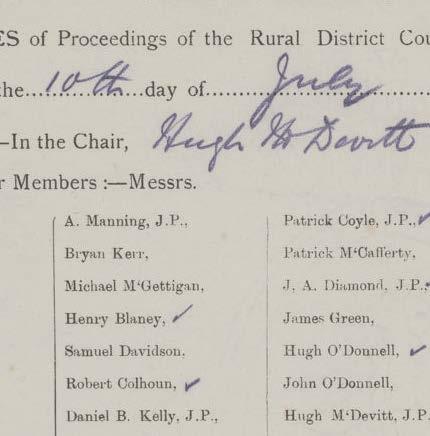 ES of Proceedings of the Rural District Cou
the....10th....day of....July....
—In the Chair, Hugh McDevitt
r Members :—Messrs.
A. Manning, J.P.,
Bryan Kerr,
Michael M‘Gettigan,
Henry Blaney, ✓
Samuel Davidson,
Robert Colhoun, ✓
Daniel B. Kelly, J.P.,
Patrick Coyle, J.P., ✓
Patrick M‘Cafferty,
J. A. Diamond, J.P.,
James Green,
Hugh O'Donnell, ✓
John O'Donnell,
Hugh M‘Devitt, J.P.